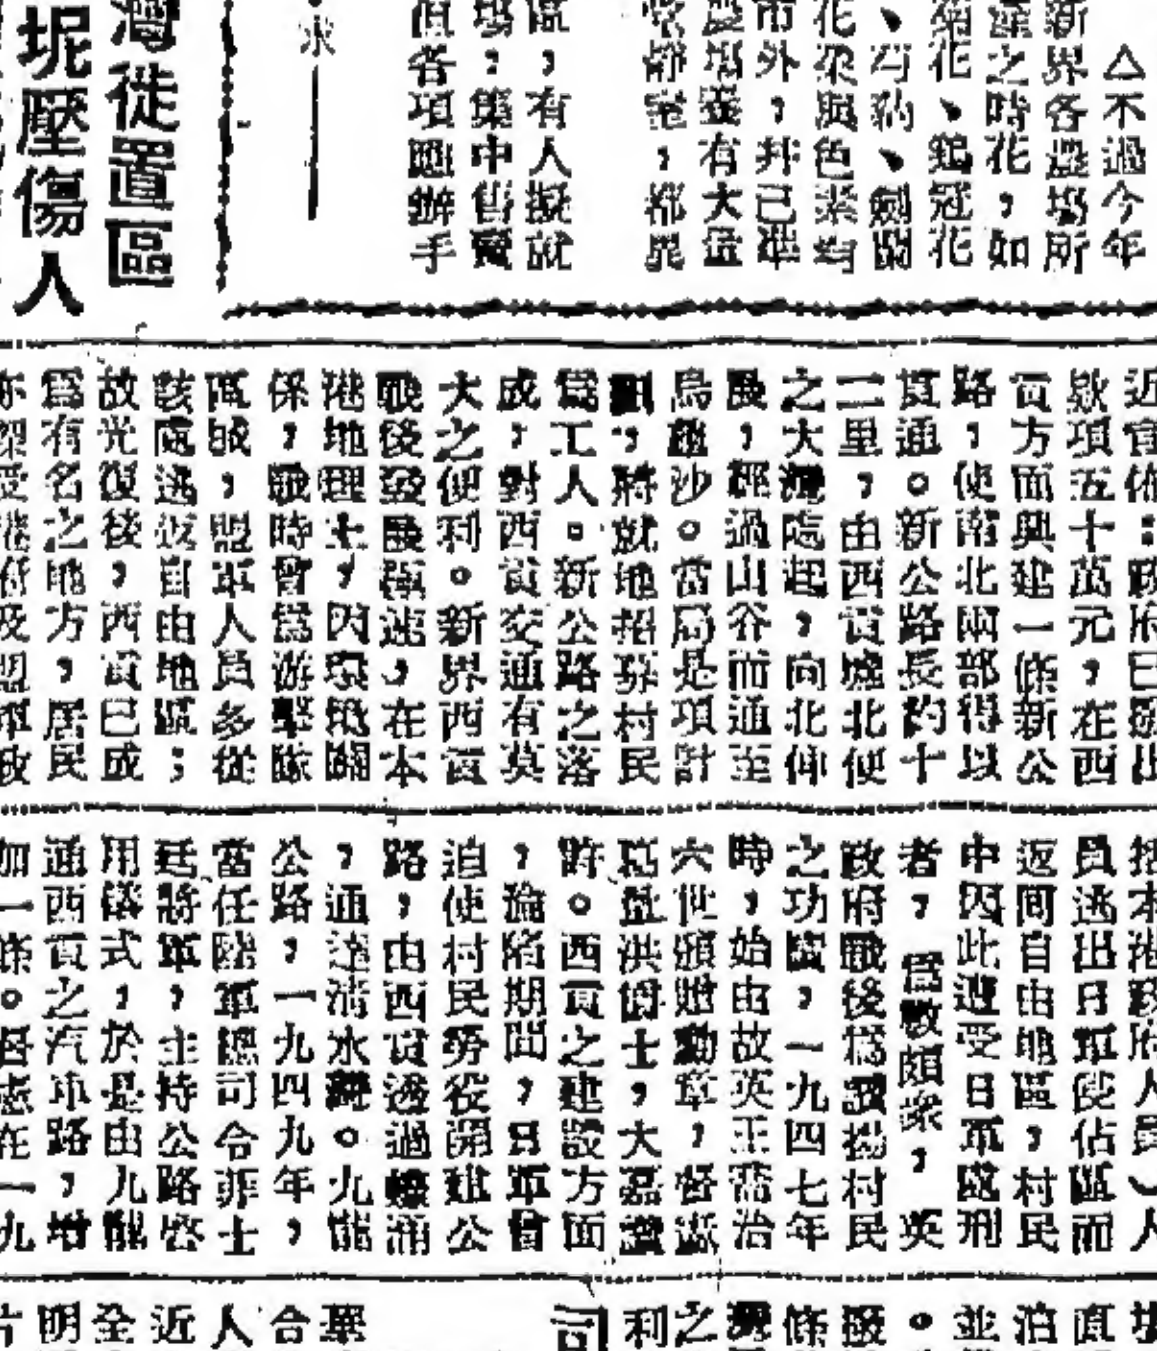 △不過今年
新界各農場所
產之時花,如
菊花、鷄冠花
、芍葯、劍蘭
花朶與色素均
市外,幷已準
農場並有大量
靜室,都異
區,有人擬就
塲,集中售賣
值各項應辦手
灣徙置區
坭壓傷人
近官佈:政府已撥出
欵項五十萬元,在西
貢方面興建一條新公
路,使南北兩部得以
貫通。新公路長約十
二里,由西貢墟北便
之大灣處起,向北伸
展,經過山谷而通至
烏溪沙。當局是項計
劃,將就地招募村民
為工人。新公路之落
成,對西貢交通有莫
大之便利。新界西貢
戰後發展極速,在本
港地理上,因環境關
係,戰時曾為游擊隊
區域,盟軍人員多從
該處逃返自由地區;
故光復後,西貢已成
為有名之地方,居民
亦深受港府及盟軍政
括本港政府人員)人
員逃出日軍侵佔區而
返回自由地區,村民
中因此遭受日軍處刑
者,為數頗衆,英
政府戰後為讚揚村民
之功績,一九四七年
時,始由故英王喬治
六世頒賜勳章,督憲
葛量洪爵士,大嘉讚
許。西貢之建設方面
,淪陷期間,日軍曾
迫使村民勞役開建公
路,由西貢透過蠔涌
,通達清水灣。九龍
公路,一九四九年,
當任陸軍總司令菲士
廷將軍,主持公路啓
用儀式,於是由九龍
通西貢之汽車路,增
加一條。督憲在一九
直
泊
並
。
條
灣
之
利
司
合
人
近
全
明
片